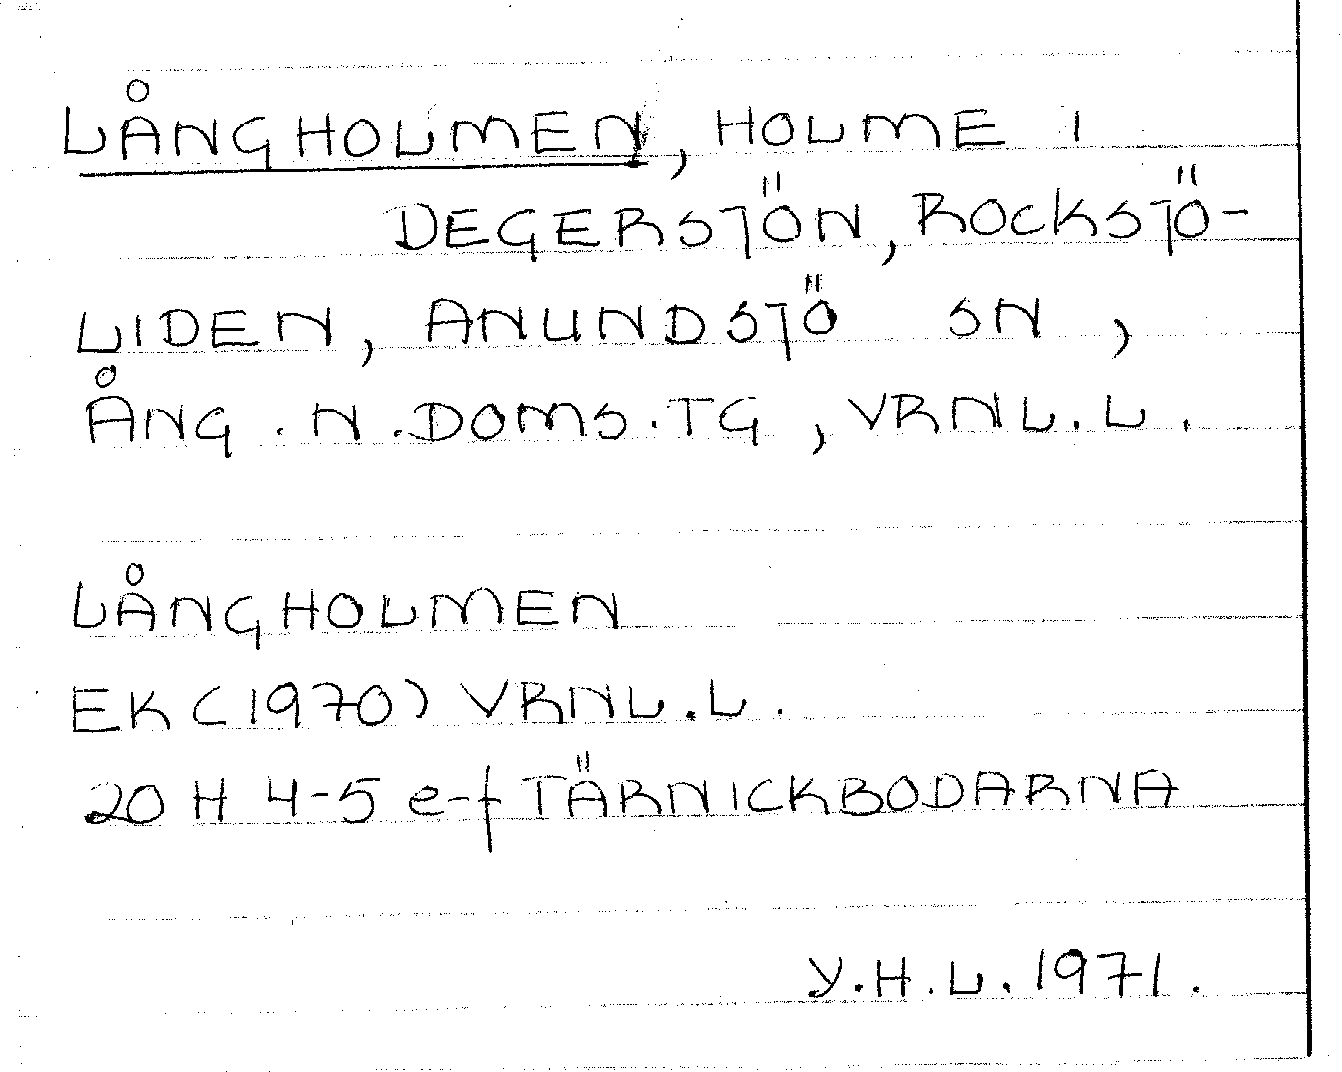 LÅNGHOLMEN, HOLME I
DEGERSJÖN, ROCKSJÖ-
LIDEN, ANUNDSJÖ SN,
ÅNG. N. DOMS. TG, VRNL. L.
LÅNGHOLMEN
EK (1970) VRNL. L.
20 H 4-5 e-f TÄRNICKBODARNA
Y. H. L. 1971.